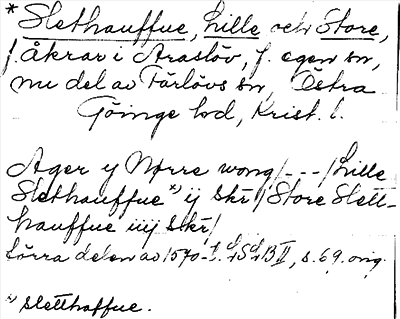 * Slethauffue, Lille och Store,
f. åkrar i Araslöv, f. egen sn,
nu del av Färlövs sn, Östra
Göinge hd, Krist. l.
Ager y Nørre wong /---/ Lille
Slethauffue *) ij skr / Store Slett-
hauffue iiij skr /
Förra delen av 1570-t. LSLB II, s. 69. orig.
*) Sletthaffue.